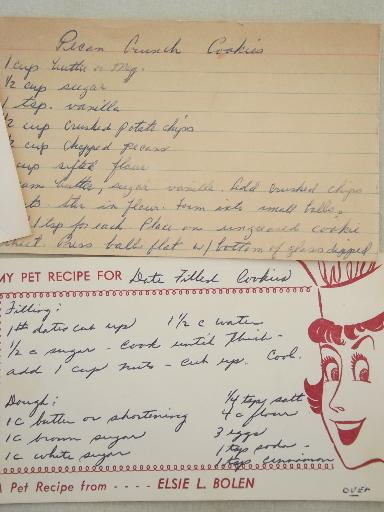 Pecan Crunch Cookies
1 cup butter or Mrg.
1/2 cup sugar
1 tsp. vanilla
1/2 cup Crushed Potato chips
1/2 cup Chopped Pecans
cup sifted flour
butter, sugar vanilla. Add Crushed chips
stir in flour. Form into small balls,
1 tsp for each. Place on ungreased cookie
sheet. Press balls flat w/ bottom of glass dipped
MY PET RECIPE FOR Date Filled Cookies
Filling:
1# dates cut up 1 1/2 c water
1/2 c sugar - cook until thick -
add 1 cup nuts - cut up. Cool.
Dough: 1/4 tsp salt
1c butter or shortening 4 c flour
1c brown sugar 3 eggs
1c white sugar 1 tsp soda -
1 tsp cinnamon
A Pet Recipe from - - - - ELSIE L. BOLEN
OVER